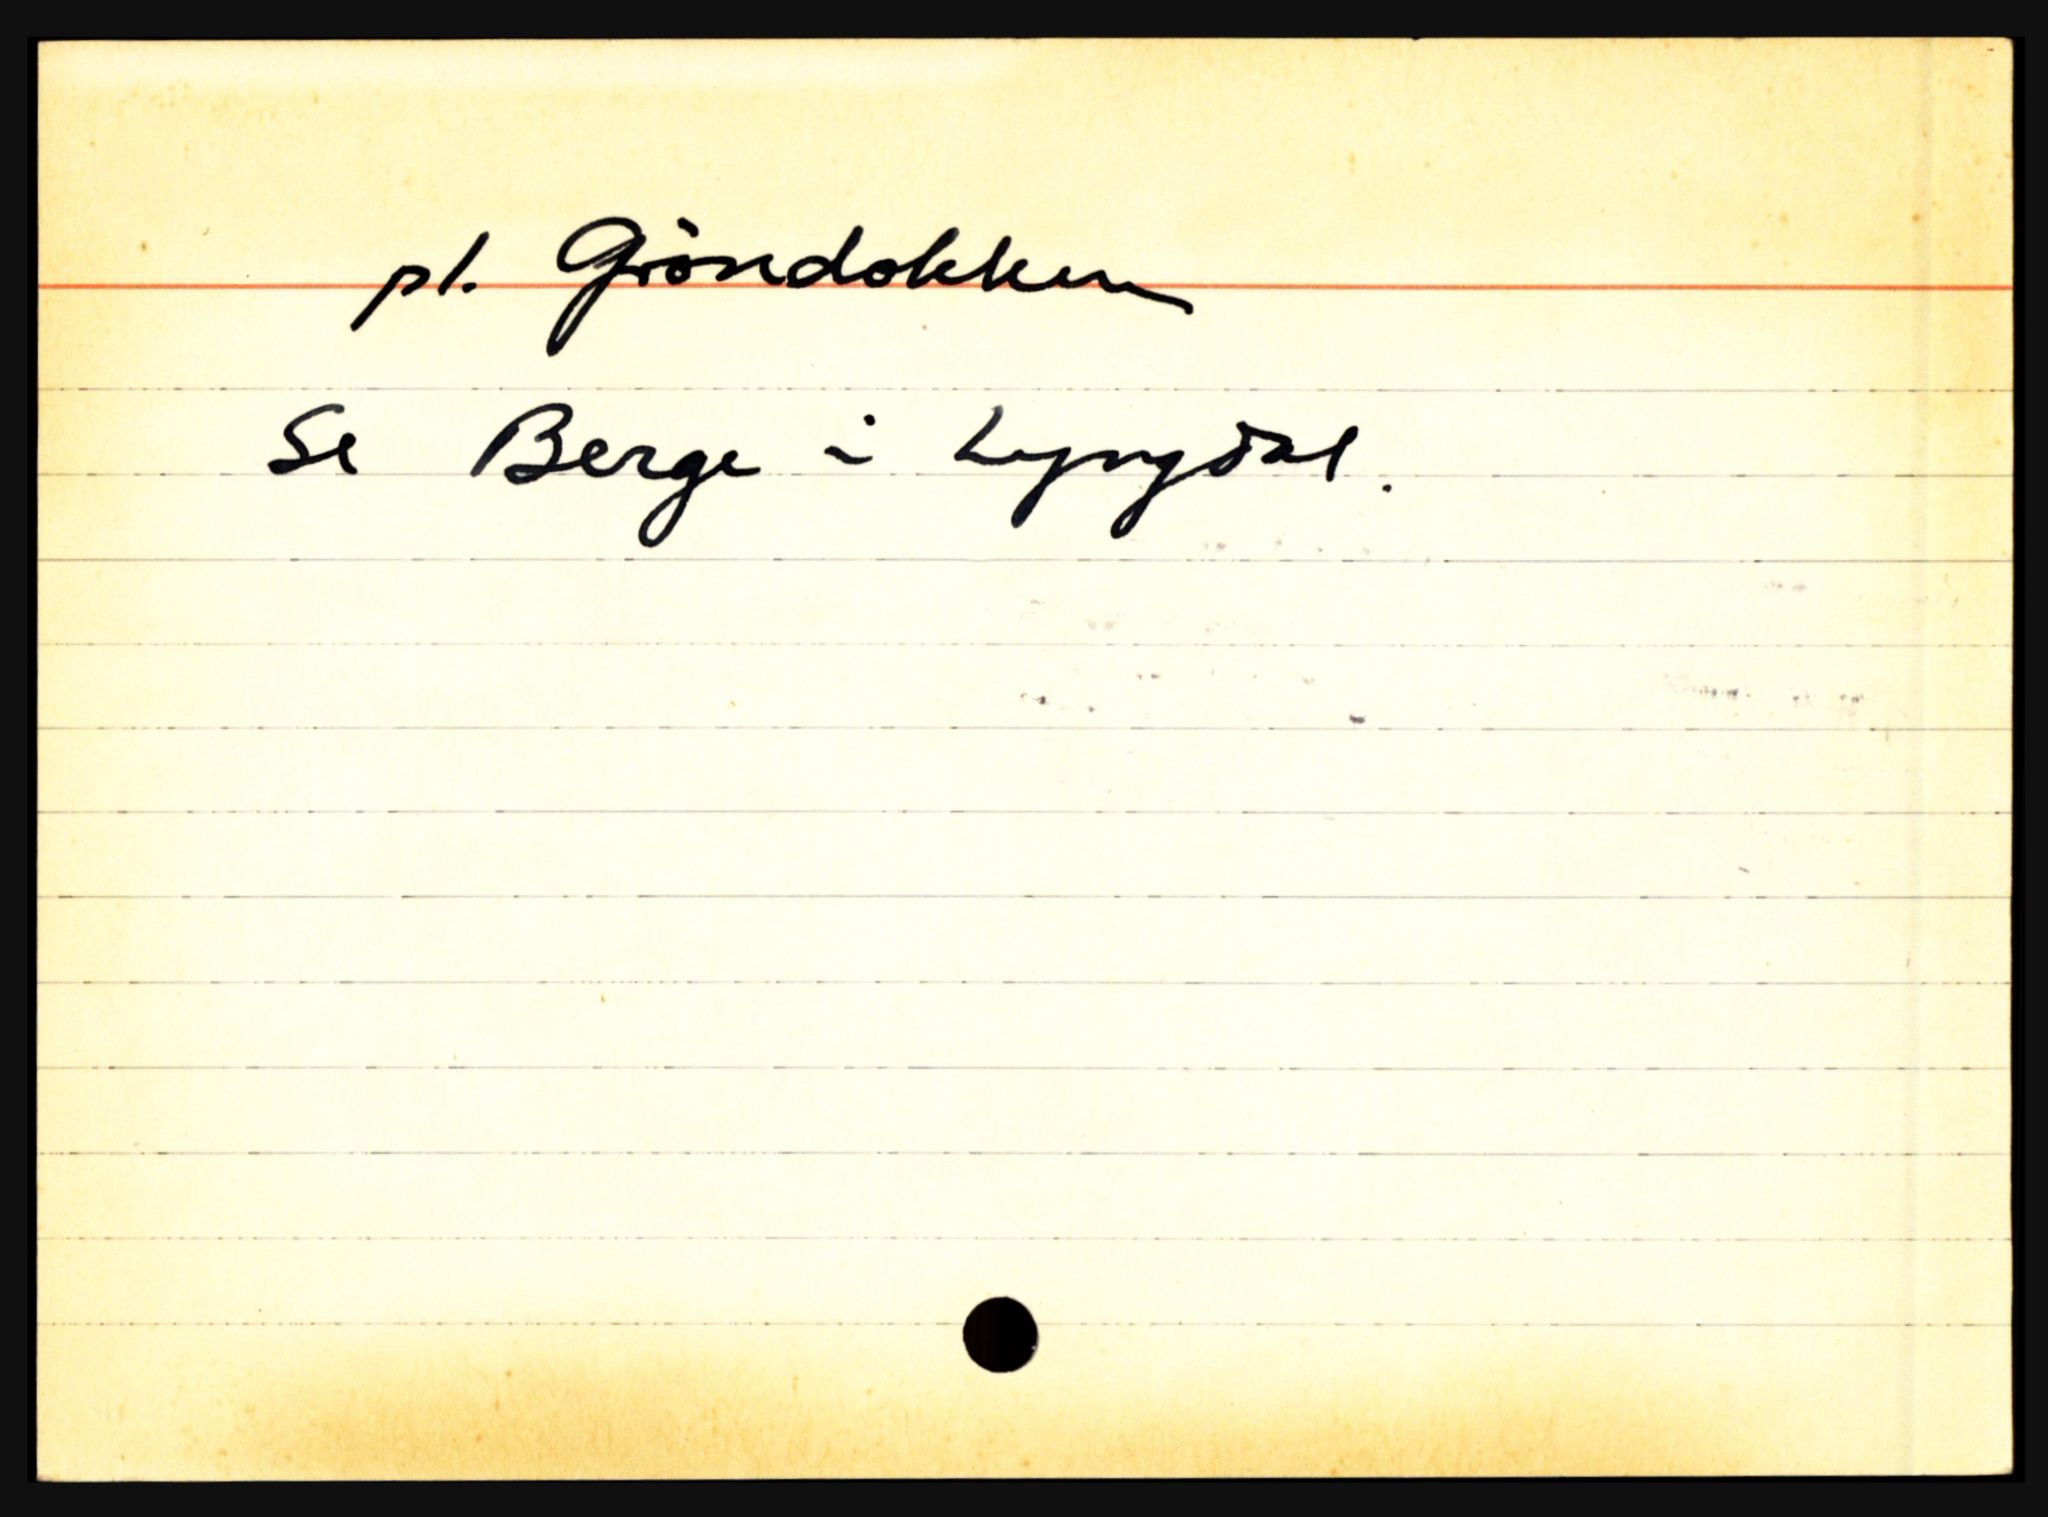 pl. Gröndokken
Se Berge i Lyngdal.